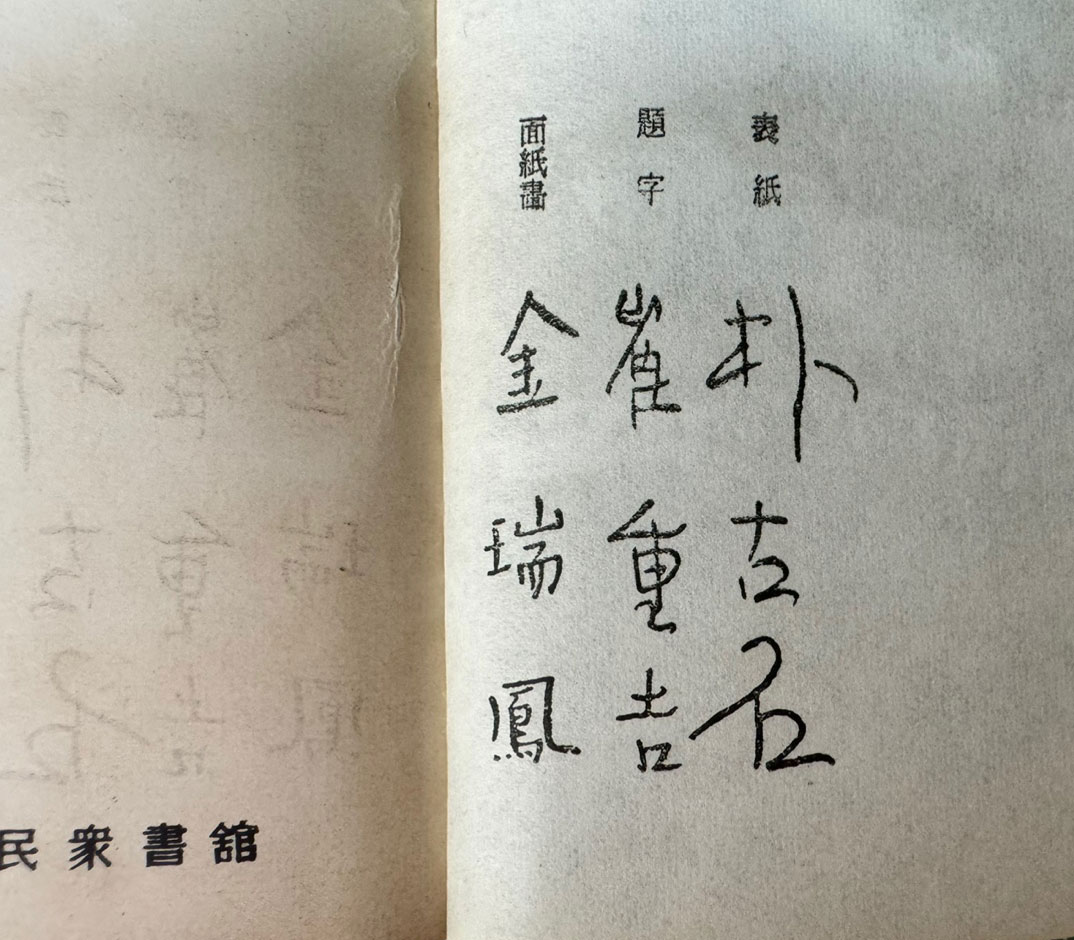 表紙
朴古石
題字
崔重吉
面紙畵
金瑞鳳
民衆書舘